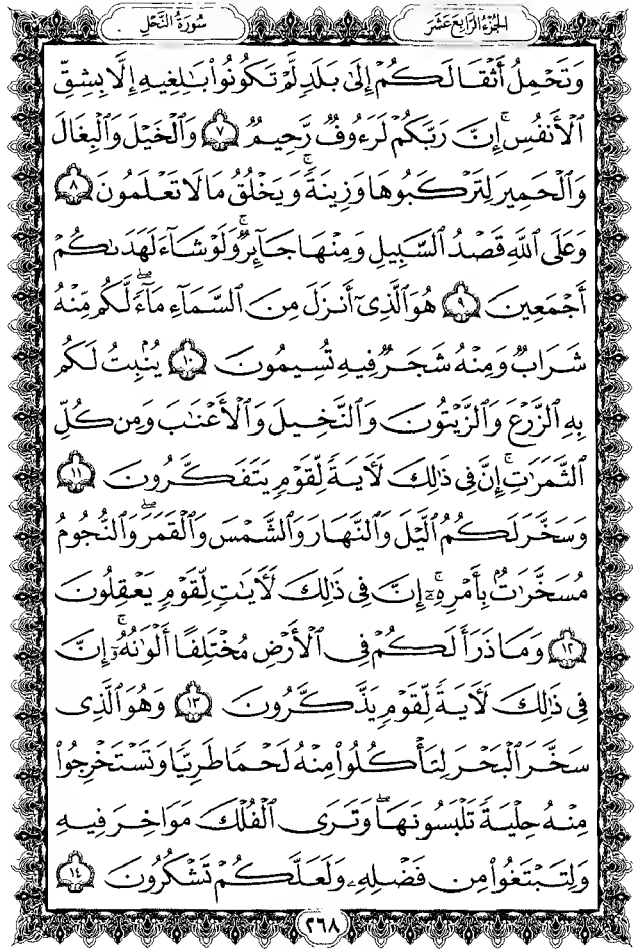 سُورَةُ النَّحْلِ
الجُزْءُ الرَّابِعُ عَشَرَ
وَتَحْمِلُ أَثْقَالَكُمْ إِلَىٰ بَلَدٍ لَّمْ تَكُونُوا۟ بَٰلِغِيهِ إِلَّا بِشِقِّ
ٱلْأَنفُسِ ۚ إِنَّ رَبَّكُمْ لَرَءُوفٌ رَّحِيمٌ ٧ وَٱلْخَيْلَ وَٱلْبِغَالَ
وَٱلْحَمِيرَ لِتَرْكَبُوهَا وَزِينَةً ۚ وَيَخْلُقُ مَا لَا تَعْلَمُونَ ٨
وَعَلَى ٱللَّهِ قَصْدُ ٱلسَّبِيلِ وَمِنْهَا جَآئِرٌ ۚ وَلَوْ شَآءَ لَهَدَىٰكُمْ
أَجْمَعِينَ ٩ هُوَ ٱلَّذِىٓ أَنزَلَ مِنَ ٱلسَّمَآءِ مَآءً ۖ لَّكُم مِّنْهُ
شَرَابٌ وَمِنْهُ شَجَرٌ فِيهِ تُسِيمُونَ ١٠ يُنۢبِتُ لَكُم
بِهِ ٱلزَّرْعَ وَٱلزَّيْتُونَ وَٱلنَّخِيلَ وَٱلْأَعْنَٰبَ وَمِن كُلِّ
ٱلثَّمَرَٰتِ ۗ إِنَّ فِى ذَٰلِكَ لَءَايَةً لِّقَوْمٍ يَتَفَكَّرُونَ ١١
وَسَخَّرَ لَكُمُ ٱلَّيْلَ وَٱلنَّهَارَ وَٱلشَّمْسَ وَٱلْقَمَرَ ۖ وَٱلنُّجُومُ
مُسَخَّرَٰتٌۢ بِأَمْرِهِۦٓ ۗ إِنَّ فِى ذَٰلِكَ لَءَايَٰتٍ لِّقَوْمٍ يَعْقِلُونَ
١٢ وَمَا ذَرَأَ لَكُمْ فِى ٱلْأَرْضِ مُخْتَلِفًا أَلْوَٰنُهُۥٓ ۗ إِنَّ
فِى ذَٰلِكَ لَءَايَةً لِّقَوْمٍ يَذَّكَّرُونَ ١٣ وَهُوَ ٱلَّذِى
سَخَّرَ ٱلْبَحْرَ لِتَأْكُلُوا۟ مِنْهُ لَحْمًا طَرِيًّا وَتَسْتَخْرِجُوا۟
مِنْهُ حِلْيَةً تَلْبَسُونَهَا ۖ وَتَرَى ٱلْفُلْكَ مَوَاخِرَ فِيهِ
وَلِتَبْتَغُوا۟ مِن فَضْلِهِۦ وَلَعَلَّكُمْ تَشْكُرُونَ ١٤
٢٦٨